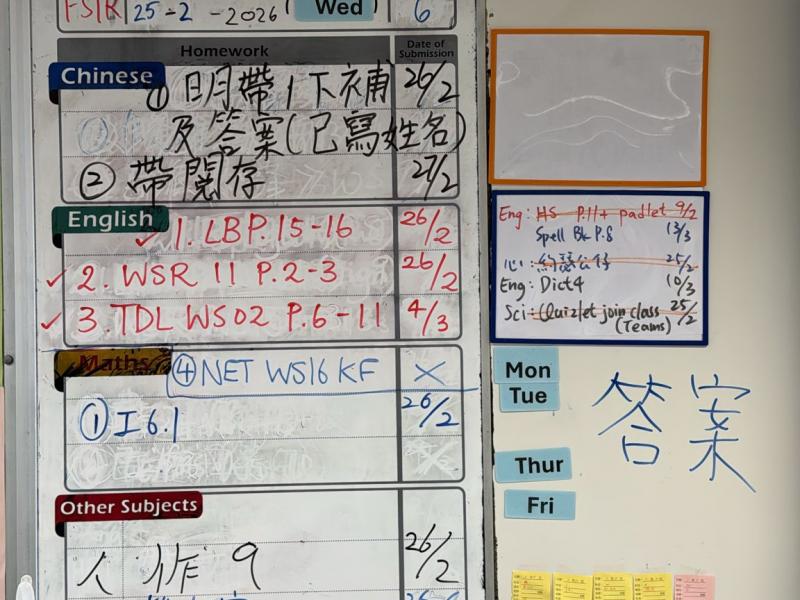 25-2-2026 Wed 6
Homework Date of Submission
Chinese
① 明帶1下補 26/2
及答案(已寫姓名)
② 帶閱存 27/2
English
1. LB P.15-16 26/2
2. WSR 11 P.2-3 26/2
3. TDL WS02 P.6-11 4/3
Maths ④ NET WS16 KF ×
① I 6.1 26/2
Other Subjects
人作 9 26/2
Eng: HS P.11+ padlet 9/2
Spell Bk P.8 13/3
25/2
Eng: Dict4 10/3
Sci: Quizlet join class 25/2
(Teams)
Mon
Tue
Thur
Fri
答案